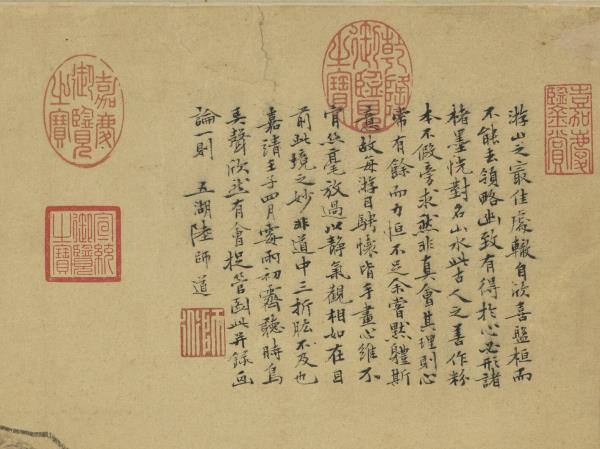 游山之最佳處輒自欣喜盤桓而
不能去領略幽致有得於心必形諸
褚墨恍對名山水此古人之善作粉
本不假旁求然非真會其理則心
常有餘而力恒不足余嘗默體斯
意故每游目騁懷皆手畫心維不
肯絲毫放過以靜氣觀相如在目
前此境之妙非道中三折肱不及也
嘉靖壬子四月霉雨初霽聽時鳥
弄聲欣然有會捉管圖此并錄畫
論一則 五湖陸師道
嘉慶鑒賞
乾隆御覽之寶
嘉慶御覽之寶
宣統御覽之寶